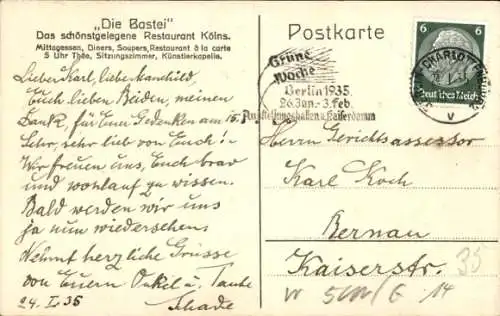 „Die Bastei"
Das schönstgelegene Restaurant Kölns.
Mittagessen, Diners, Soupers, Restaurant à la carte
5 Uhr Thée, Sitzungszimmer, Künstlerkapelle.
Lieber Karl, liebe Manchild,
Euch lieben Beiden, meinen
Dank, für Eure Gedenken am 15.
Sehr, sehr lieb von Euch!
Wir freuen uns, Euch brav
und wohlauf zu wissen.
Bald werden wir uns
ja nun wiedersehen.
Nehmt herzliche Grüsse
von Euern Onkel u. Tante
Thade.
24. I. 35
Postkarte
Grüne
Woche
Berlin 1935
26. Jan. - 3. Feb.
Ausstellungshallen a. Kaiserdamm
6
6
Deutsches Reich
CHARLOTTENBURG
v
Herrn Gerichtsassessor
Karl Koch
Bernau
Kaiserstr.
14
35